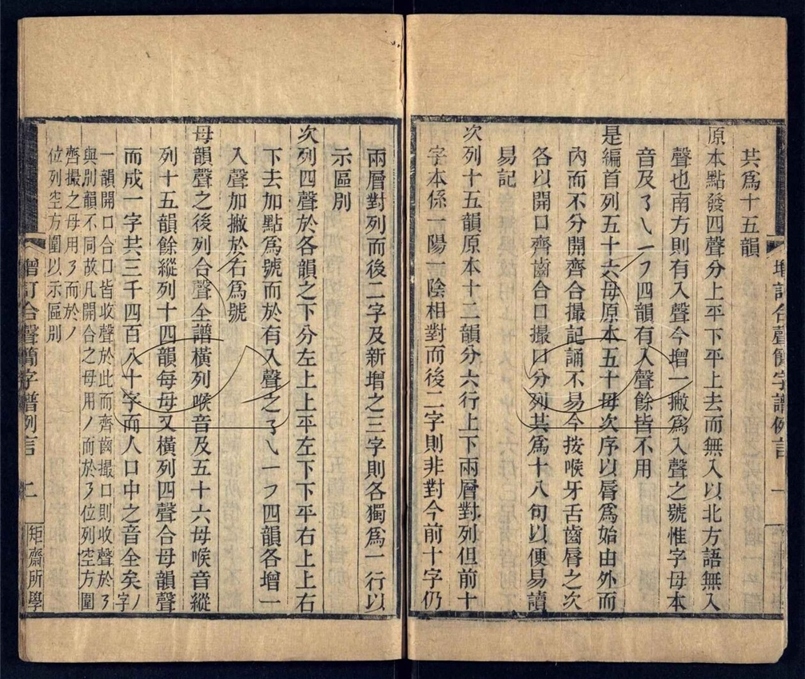 共爲十五韻
原本點發四聲分上平下平上去而無入以北方語無入
聲也南方則有入聲今增一撇爲入聲之號惟字母本
音及了乀一フ四韻有入聲餘皆不用
是編首列五十六母原本五十母次序以唇爲始由外而
內而不分開齊合撮記誦不易今按喉牙舌齒唇之次
各以開口齊齒合口撮口分列其爲十八句以便易讀
易記
次列十五韻原本十二韻分六行上下兩層對列但前十
字本係一陽一陰相對而後二字則非對今前十字仍
增訂合聲簡字譜例言 一
兩層對列而後二字及新增之三字則各獨爲一行以
示區別
次列四聲於各韻之下分左上上平左下下平右上上右
下去加點爲號而於有入聲之了乀一フ四韻各增一
入聲加撇於右爲號
母韻聲之後列合聲全譜橫列喉音及五十六母喉音縱
列十五韻餘縱列十四韻每母又橫列四聲合母韻聲
而成一字共三千四百八十字而人口中之音全矣ノ字
一韻開口合口皆收聲於此而齊齒撮口則收聲於了
與別韻不同故凡開合之母用ノ而於了位列空方圍
齊撮之母用了而於ノ
位列空方圍以示區別
增訂合聲簡字譜例言 二
矩齋所學